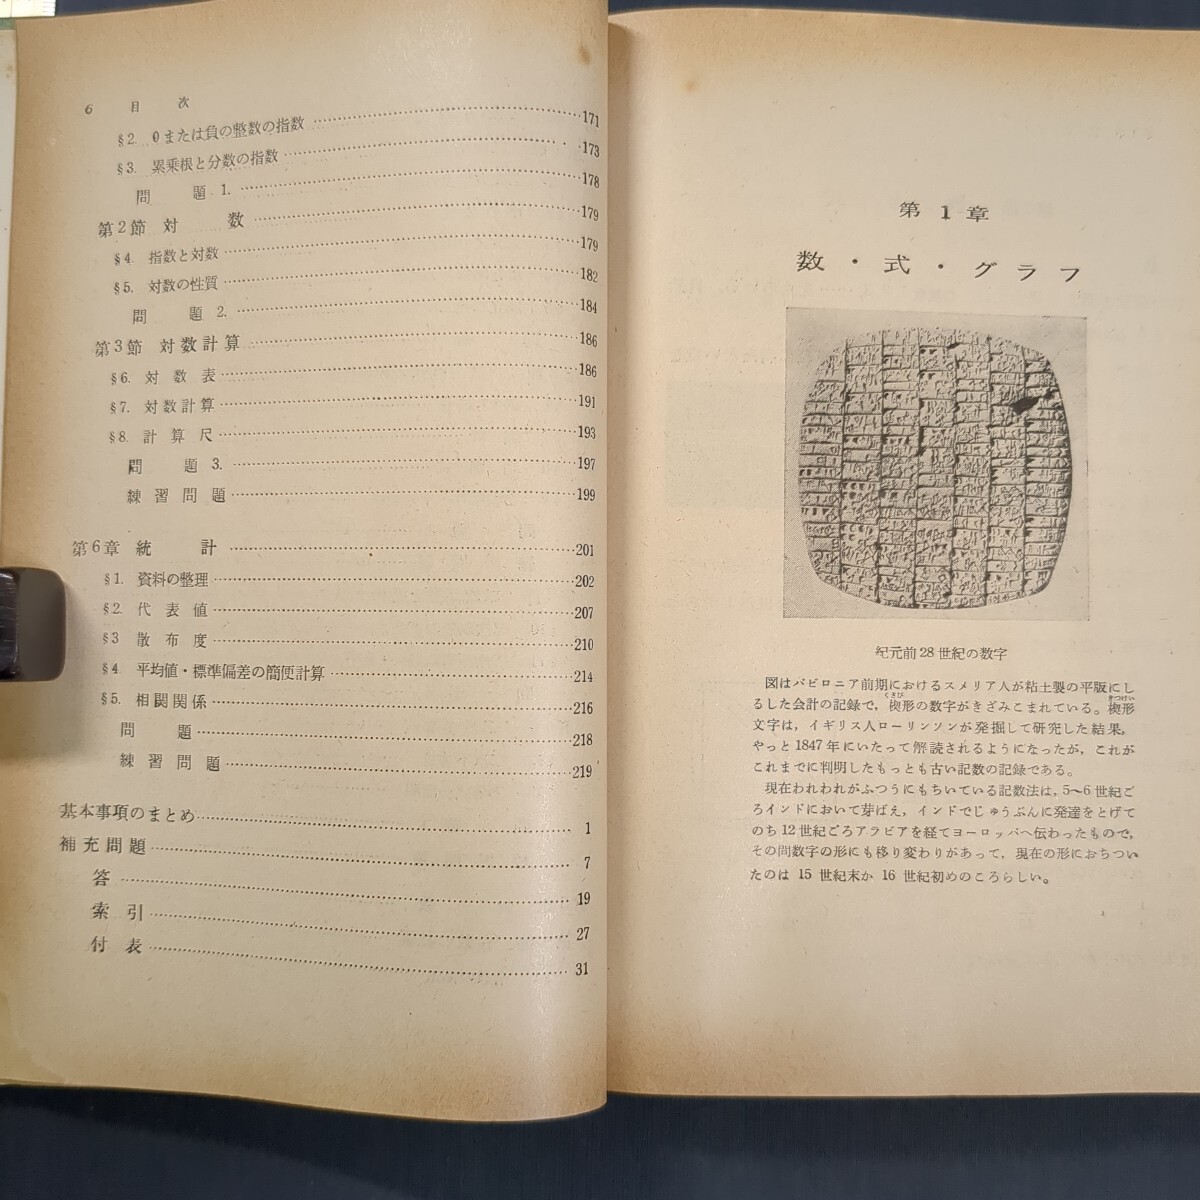 6 目 次
§2. 0または負の整数の指数 171
§3. 累乗根と分数の指数 173
問 題 1. 178
第2節 対 数 179
§4. 指数と対数 179
§5. 対数の性質 182
問 題 2. 184
第3節 対数計算 186
§6. 対 数 表 186
§7. 対数計算 191
§8. 計 算 尺 193
問 題 3. 197
練 習 問 題 199
第6章 統 計 201
§1. 資料の整理 202
§2. 代 表 値 207
§3 散 布 度 210
§4. 平均値・標準偏差の簡便計算 214
§5. 相関関係 216
問 題 218
練 習 問 題 219
基本事項のまとめ 1
補 充 問 題 7
答 19
索 引 27
付 表 31
第 1 章
数・式・グラフ
紀元前28世紀の数字
図はバビロニア前期におけるスメリア人が粘土製の平版にし
るした会計の記録で，楔形の数字がきざみこまれている。楔形
文字は，イギリス人ローリンソンが発掘して研究した結果，
やっと 1847 年にいたって解読されるようになったが，これが
これまでに判明したもっとも古い記数の記録である。
現在われわれがふつうにもちいている記数法は，5〜6 世紀ご
ろインドにおいて芽ばえ，インドでじゅうぶんに発達をとげて
のち 12 世紀ごろアラビアを経てヨーロッパへ伝わったもので，
その間数字の形にも移り変わりがあって，現在の形におちつい
たのは 15 世紀末か 16 世紀初めのころらしい。